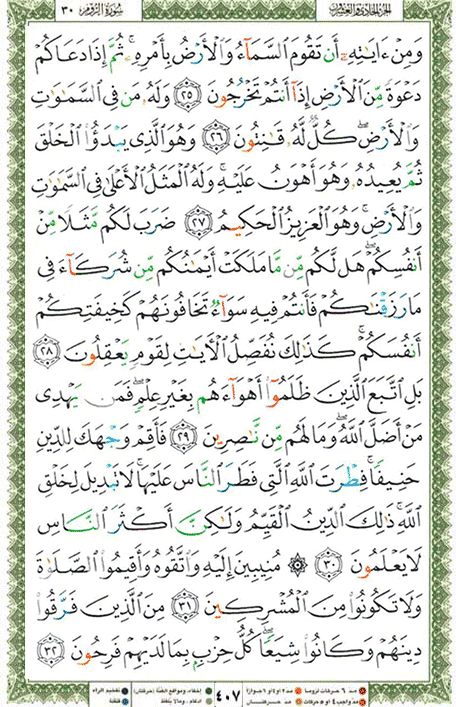 سورة الروم ٣٠
الجزء الحادي والعشرون
وَمِنْ ءَايَٰتِهِۦٓ أَن تَقُومَ ٱلسَّمَآءُ وَٱلْأَرْضُ بِأَمْرِهِۦ ۚ ثُمَّ إِذَا دَعَاكُمْ
دَعْوَةً مِّنَ ٱلْأَرْضِ إِذَآ أَنتُمْ تَخْرُجُونَ ٢٥ وَلَهُۥ مَن فِى ٱلسَّمَٰوَٰتِ
وَٱلْأَرْضِ ۖ كُلٌّ لَّهُۥ قَٰنِتُونَ ٢٦ وَهُوَ ٱلَّذِى يَبْدَؤُا۟ ٱلْخَلْقَ
ثُمَّ يُعِيدُهُۥ وَهُوَ أَهْوَنُ عَلَيْهِ ۚ وَلَهُ ٱلْمَثَلُ ٱلْأَعْلَىٰ فِى ٱلسَّمَٰوَٰتِ
وَٱلْأَرْضِ ۚ وَهُوَ ٱلْعَزِيزُ ٱلْحَكِيمُ ٢٧ ضَرَبَ لَكُم مَّثَلًا مِّنْ
أَنفُسِكُمْ ۖ هَل لَّكُم مِّن مَّا مَلَكَتْ أَيْمَٰنُكُم مِّن شُرَكَآءَ فِى
مَا رَزَقْنَٰكُمْ فَأَنتُمْ فِيهِ سَوَآءٌ تَخَافُونَهُمْ كَخِيفَتِكُمْ
أَنفُسَكُمْ ۚ كَذَٰلِكَ نُفَصِّلُ ٱلْءَايَٰتِ لِقَوْمٍ يَعْقِلُونَ ٢٨
بَلِ ٱتَّبَعَ ٱلَّذِينَ ظَلَمُوٓا۟ أَهْوَآءَهُم بِغَيْرِ عِلْمٍ ۖ فَمَن يَهْدِى
مَنْ أَضَلَّ ٱللَّهُ ۖ وَمَا لَهُم مِّن نَّٰصِرِينَ ٢٩ فَأَقِمْ وَجْهَكَ لِلدِّينِ
حَنِيفًا ۚ فِطْرَتَ ٱللَّهِ ٱلَّتِى فَطَرَ ٱلنَّاسَ عَلَيْهَا ۚ لَا تَبْدِيلَ لِخَلْقِ
ٱللَّهِ ۚ ذَٰلِكَ ٱلدِّينُ ٱلْقَيِّمُ وَلَٰكِنَّ أَكْثَرَ ٱلنَّاسِ
لَا يَعْلَمُونَ ٣٠ ۞ مُنِيبِينَ إِلَيْهِ وَٱتَّقُوهُ وَأَقِيمُوا۟ ٱلصَّلَوٰةَ
وَلَا تَكُونُوا۟ مِنَ ٱلْمُشْرِكِينَ ٣١ مِنَ ٱلَّذِينَ فَرَّقُوا۟
دِينَهُمْ وَكَانُوا۟ شِيَعًا ۖ كُلُّ حِزْبٍۭ بِمَا لَدَيْهِمْ فَرِحُونَ ٣٢
مد ٦ حركات لزوماً مد ٢ أو ٤ أو ٦ جوازاً
مد واجب ٤ أو ٥ حركات مد حركتان
٤٠٧
إخفاء، ومواقع الغنة (حركتان) تفخيم الراء
إدغام، وما لا يلفظ قلقلة